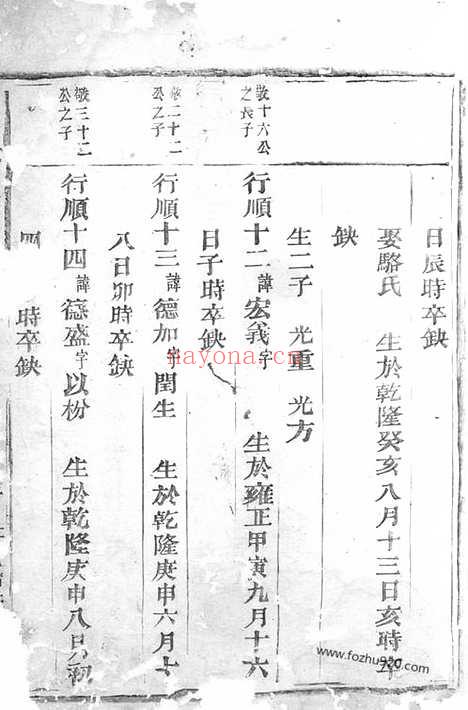 日辰時卒缺
娶駱氏　生於乾隆癸亥八月十三日亥時卒
缺
生二子　光重　光方
敬十六公
之長子
行順十二諱宏義字　生於雍正甲寅九月十六
日子時卒缺
二十二
公之子
行順十三諱德加字閏生　生於乾隆庚申六月十
八日卯時卒缺
敬三十二
公之子
行順十四諱德盛字以枌　生於乾隆庚申八月初
四　時卒缺
nayona.cn
www.fozhu920.com